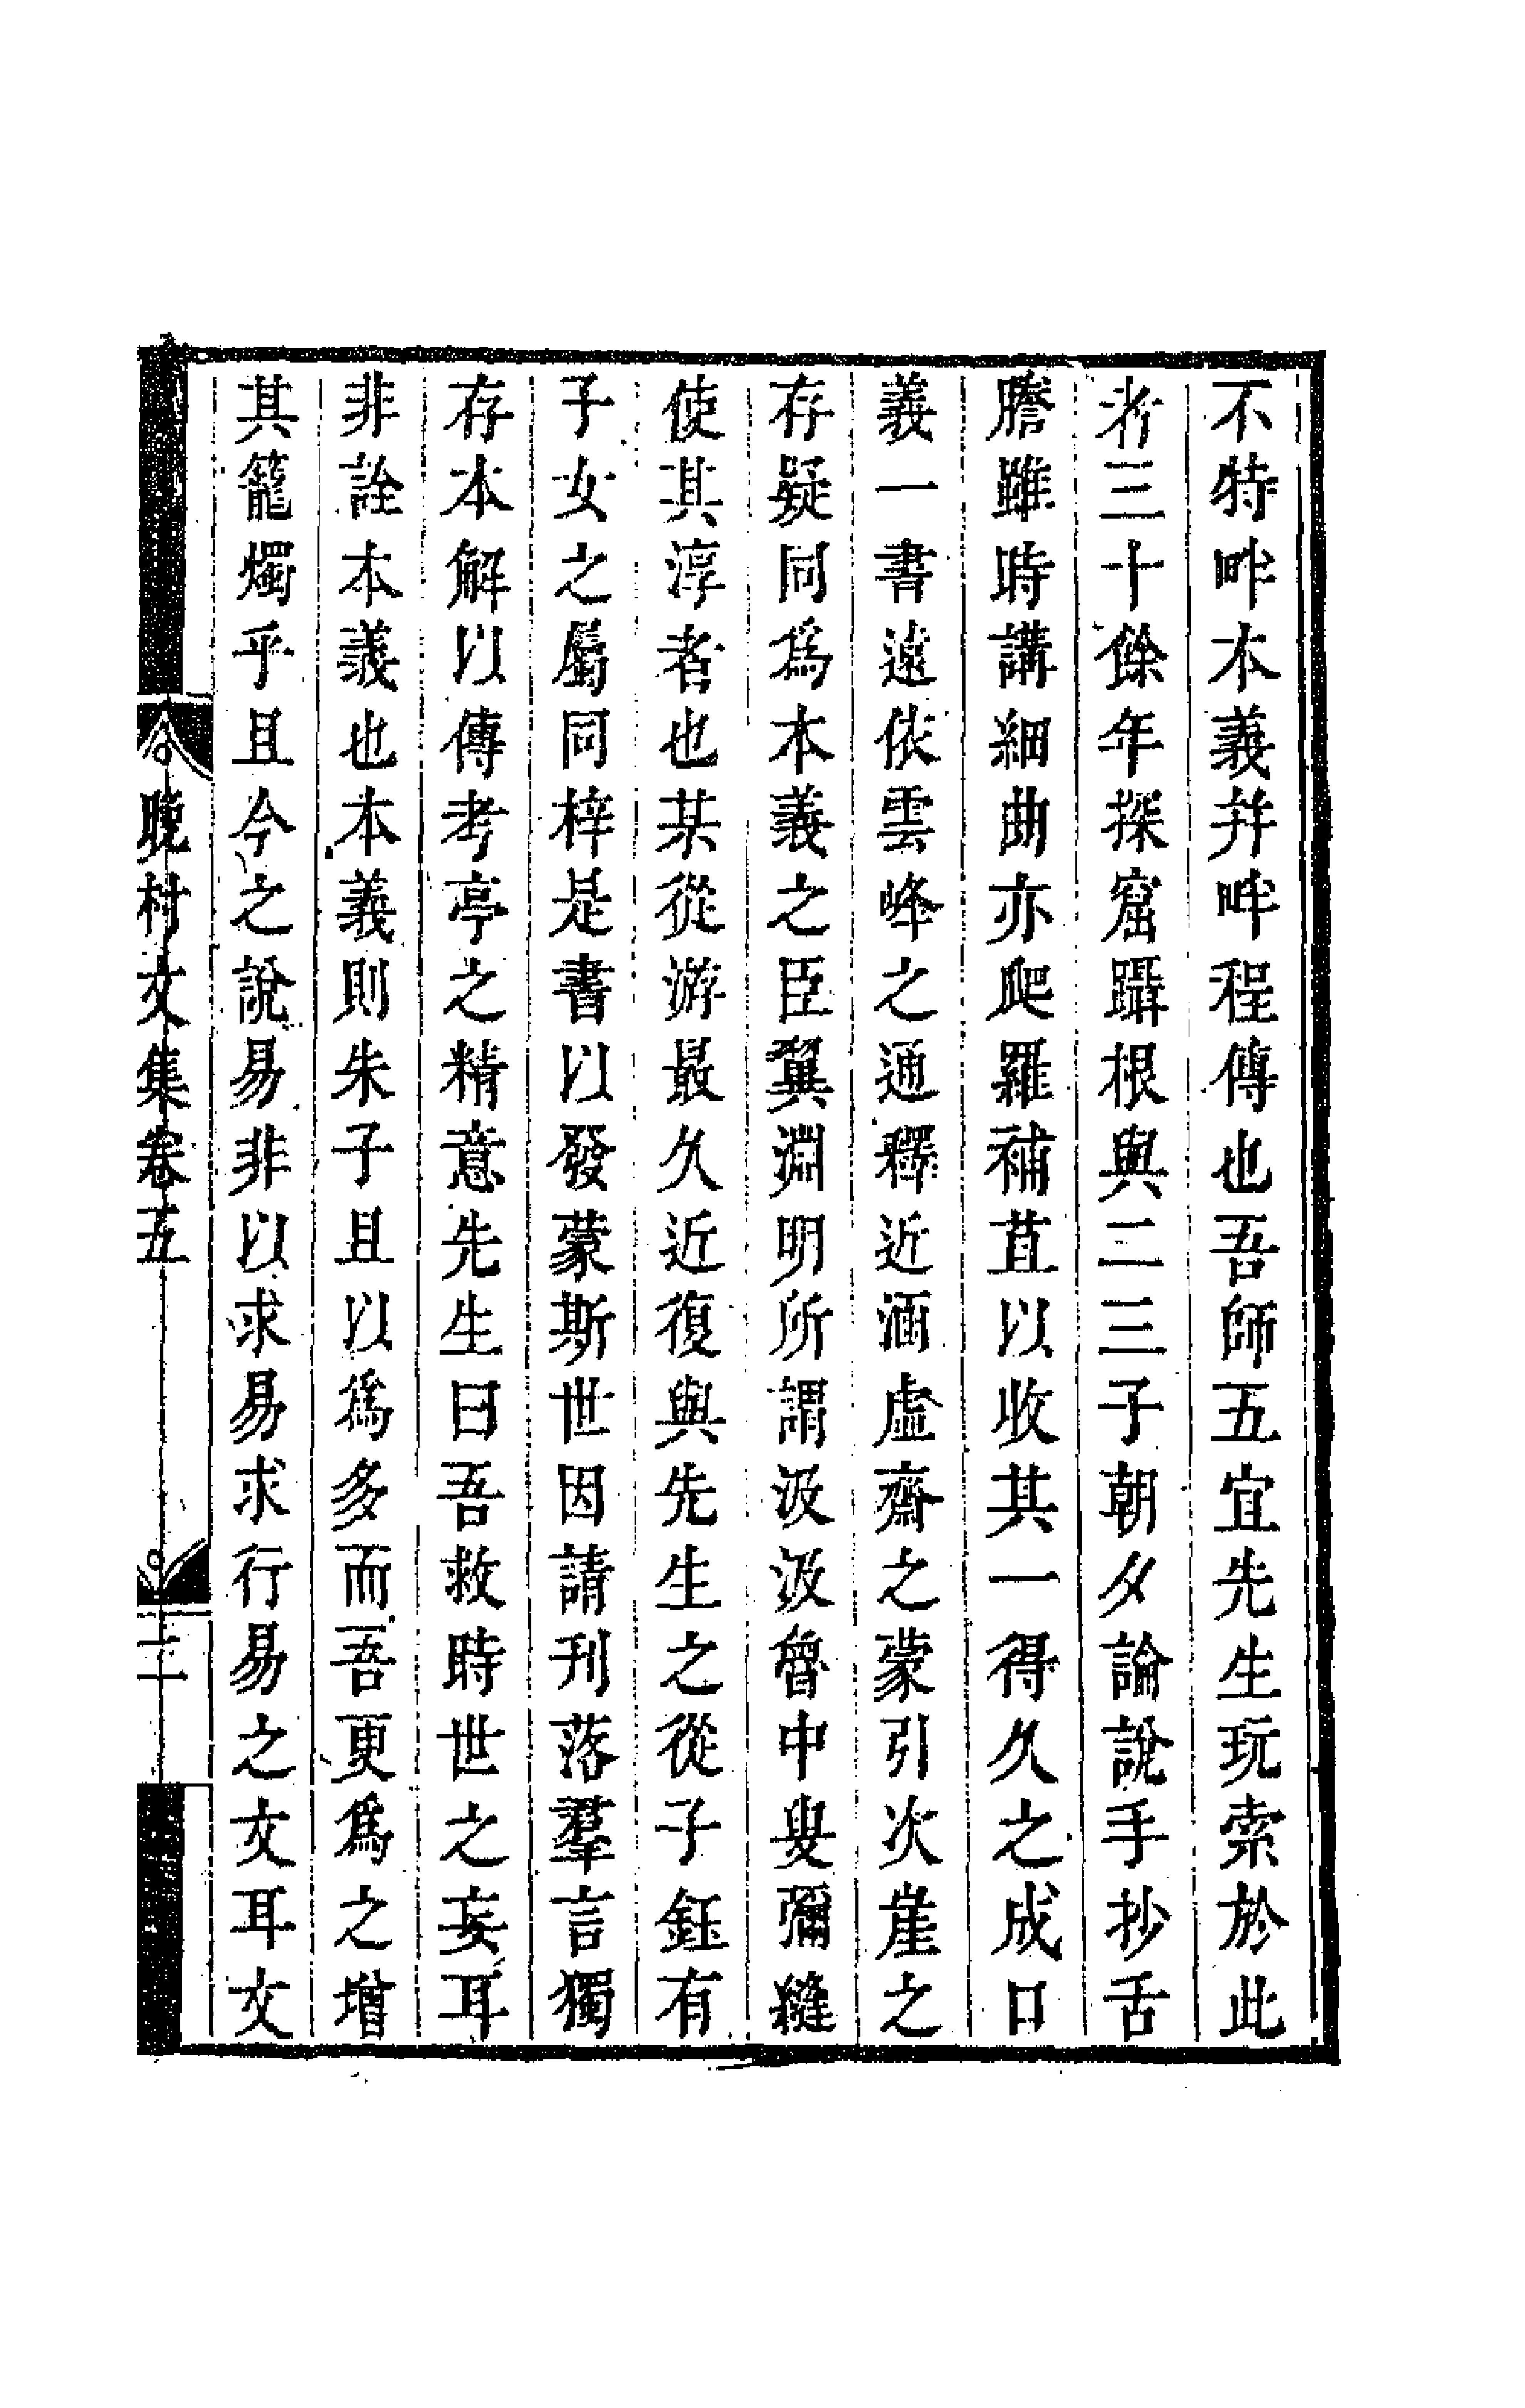 不特畔本義幷畔程傳也吾師五宜先生玩索於此
者三十餘年探窟躡根與二三子朝夕論說手抄舌
謄雖時講細曲亦爬羅補苴以收其一得久之成口
義一書遠依雲峰之通釋近涵虛齋之蒙引次崖之
存疑同爲本義之臣翼淵明所謂汲汲魯中叟彌縫
使其淳者也某從游最久近復與先生之從子鈺有
子女之屬同梓是書以發蒙斯世因請刊落羣言獨
存本解以傳考亭之精意先生曰吾救時世之妄耳
非詮本義也本義則朱子且以爲多而吾更爲之增
其籠燭乎且今之說易非以求易求行易之文耳文
晚村文集卷五
二十